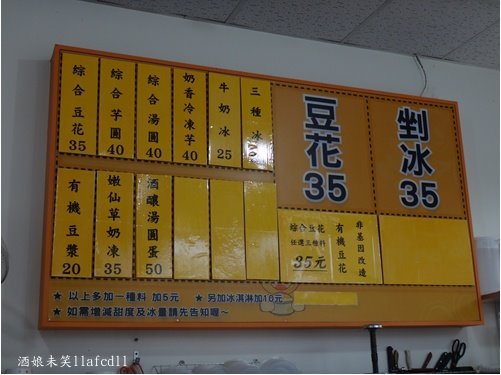 綜合豆花35
綜合芋圓40
綜合湯圓40
奶香冷凍芋40
牛奶冰25
三種冰
豆花35
剉冰35
有機豆漿20
嫩仙草奶凍35
酒釀湯圓蛋50
綜合豆花
任選三種料
35元
有機豆花
非基因改造
★ 以上多加一種料 加5元 ★ 另加冰淇淋加10元
★ 如需增減甜度及冰量請先告知喔～
酒娘未笑llafcdll